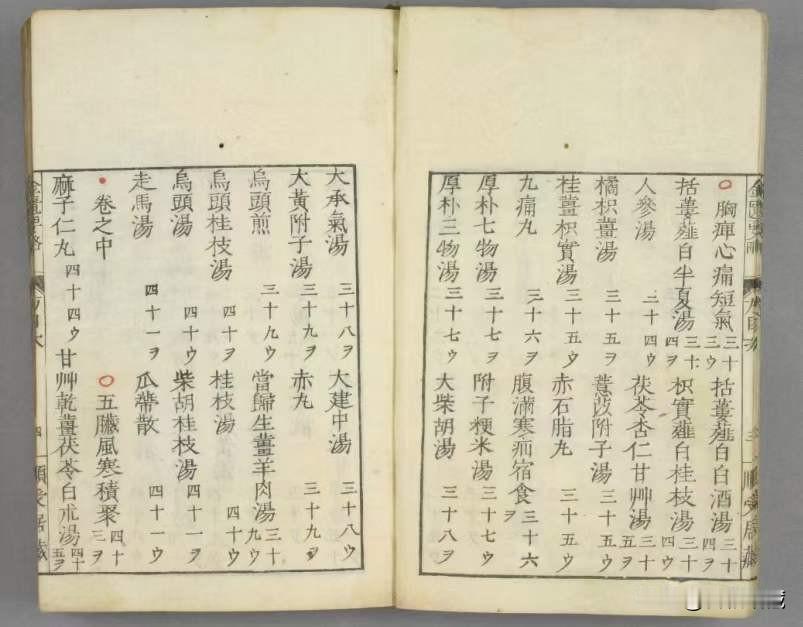 ○胸痺心痛短氣 三十三ウ 括蔞薤白白酒湯 三十四ヲ
括蔞薤白半夏湯 三十四ヲ 枳實薤白桂枝湯 三十四ウ
人參湯 三十四ウ 茯苓杏仁甘艸湯 三十五ヲ
橘枳薑湯 三十五ヲ 薏苡附子湯 三十五ウ
桂薑枳實湯 三十五ウ 赤石脂丸 三十五ウ
九痛丸 三十六ヲ 腹滿寒疝宿食 三十六ヲ
厚朴七物湯 三十七ヲ 附子粳米湯 三十七ウ
厚朴三物湯 三十七ウ 大柴胡湯 三十八ヲ
大承氣湯 三十八ヲ 大建中湯 三十八ウ
大黃附子湯 三十九ヲ 赤丸 三十九ヲ
烏頭煎 三十九ウ 當歸生薑羊肉湯 三十九ウ
烏頭桂枝湯 四十ヲ 桂枝湯 四十ウ
烏頭湯 四十ウ 柴胡桂枝湯 四十一ヲ
走馬湯 四十一ヲ 瓜蒂散 四十一ウ
卷之中 ○五臟風寒積聚 四十三ヲ
麻子仁丸 四十四ウ 甘艸乾薑茯苓白朮湯 四十五ヲ
四 順受居蔵